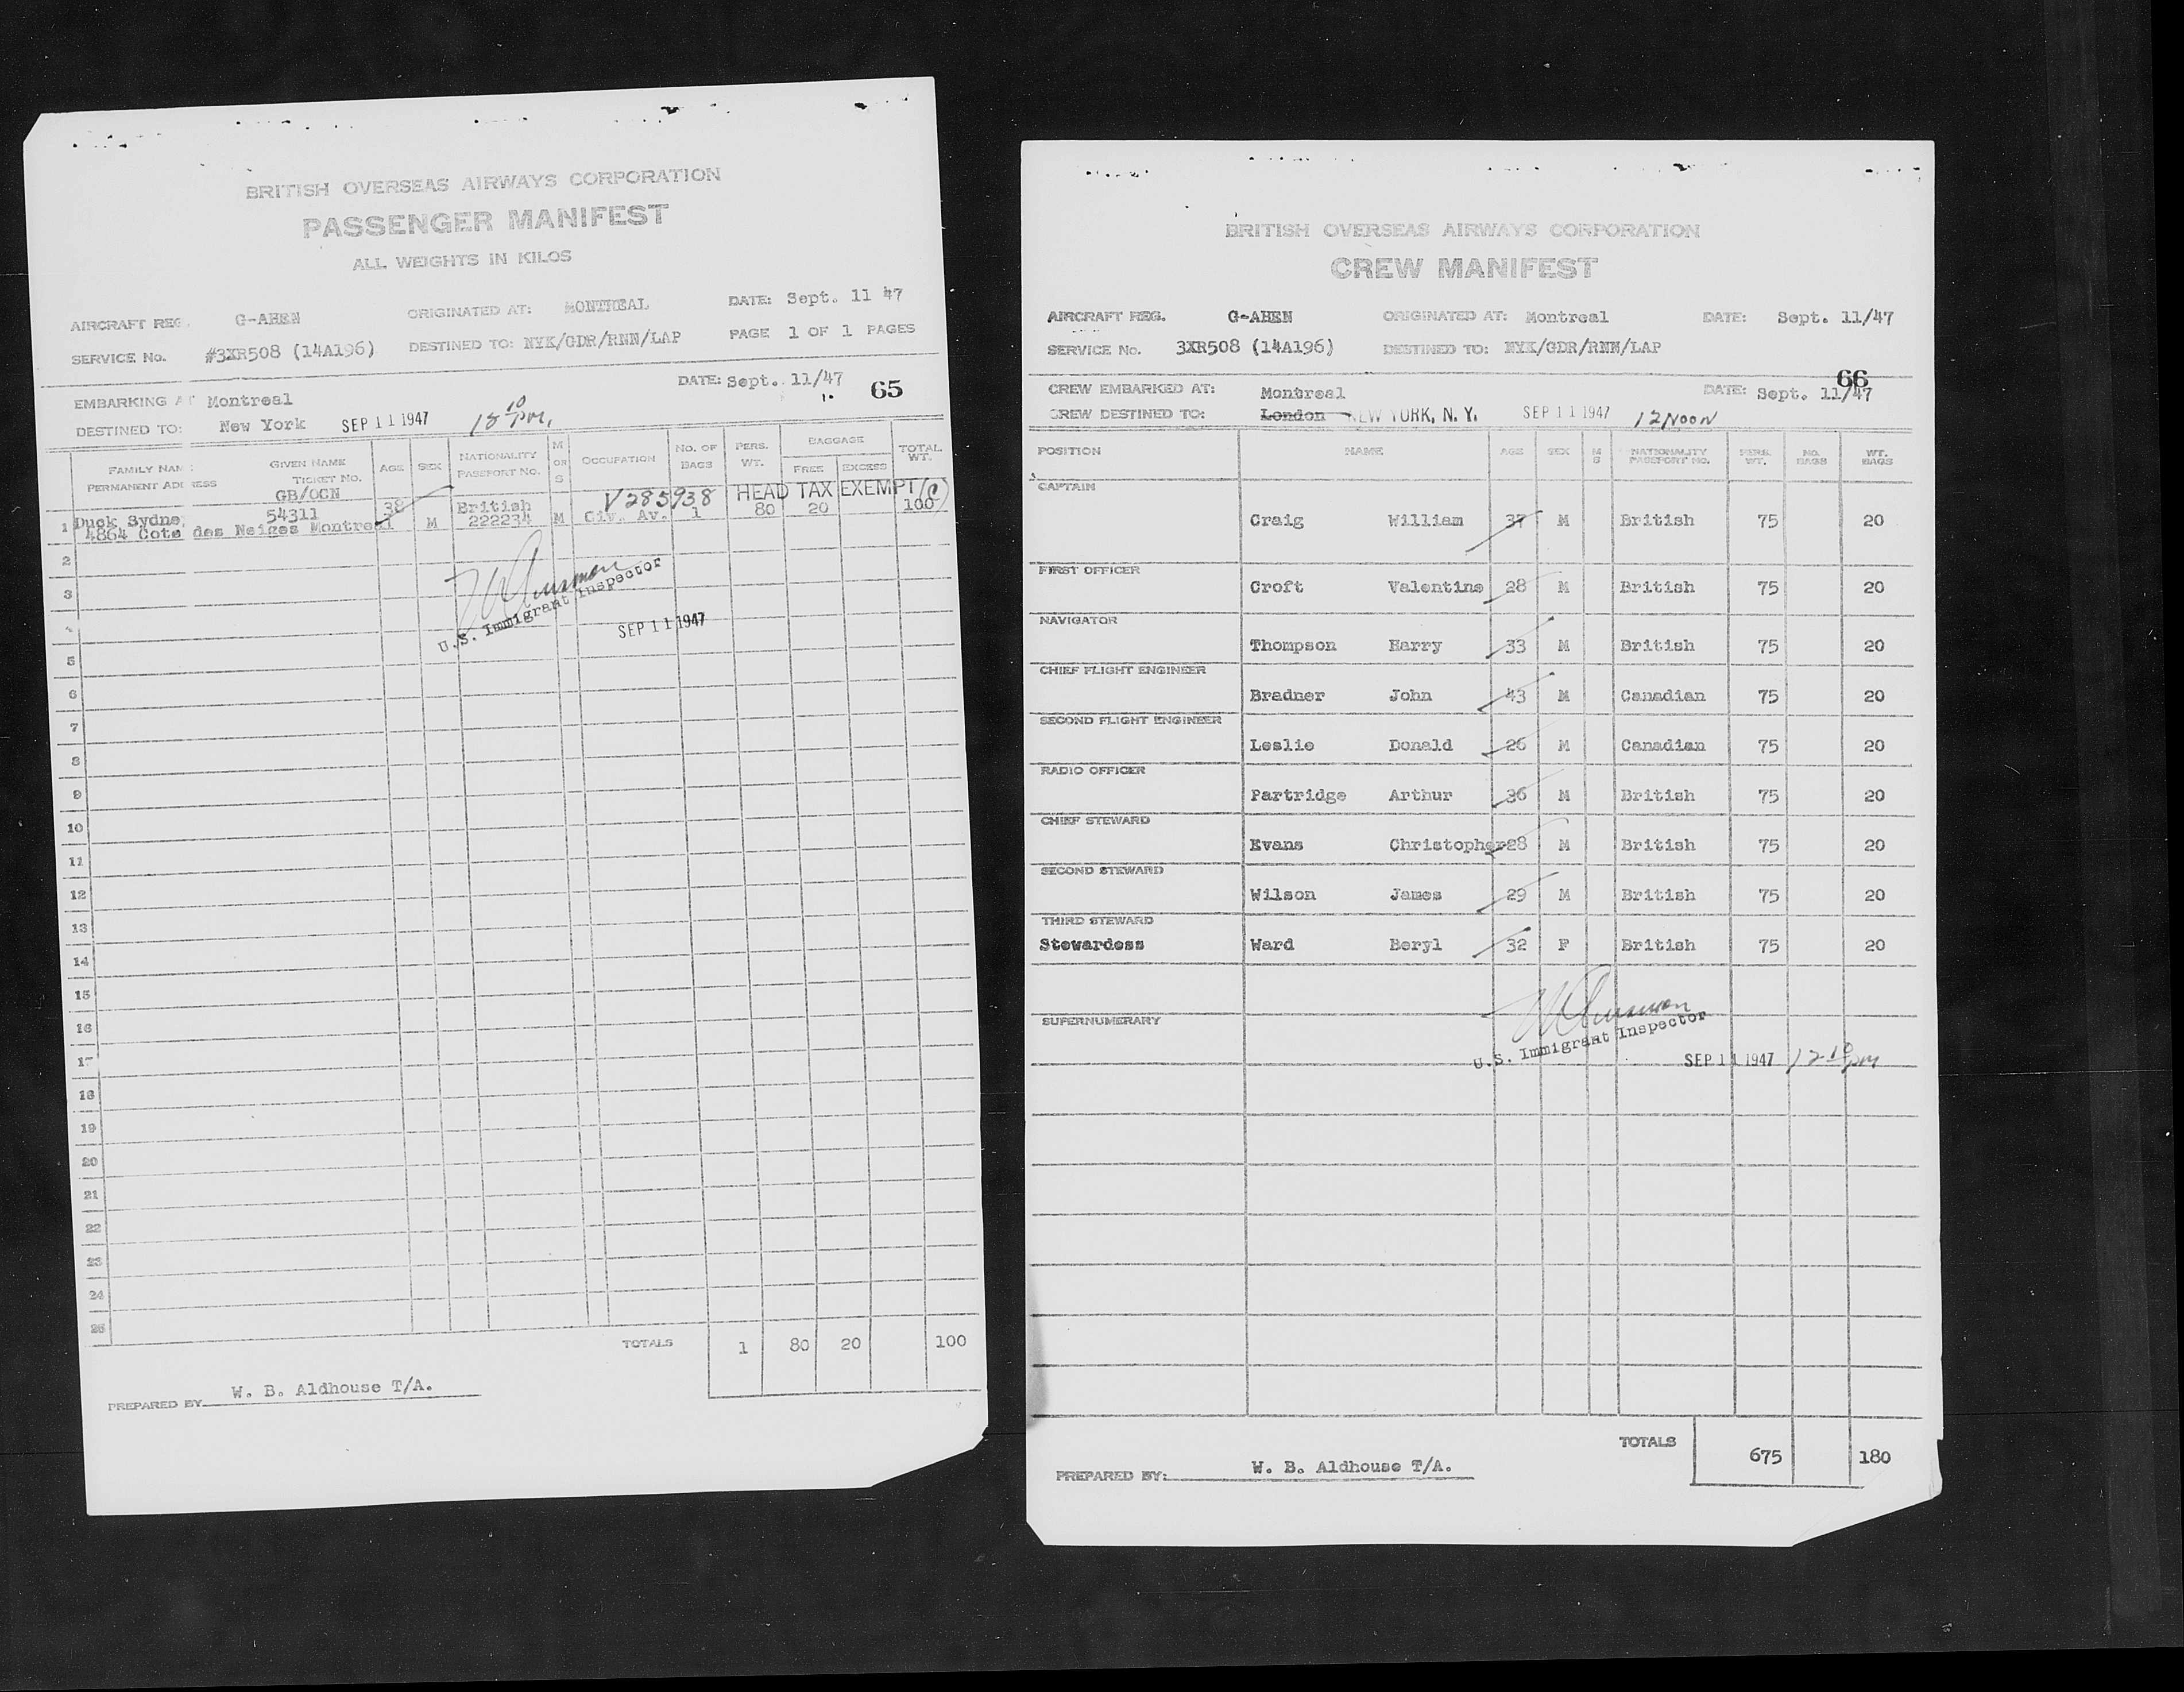 BRITISH OVERSEAS AIRWAYS CORPORATION
PASSENGER MANIFEST
ALL WEIGHTS IN KILOS
AIRCRAFT REG. G-AHEN ORIGINATED AT: MONTREAL DATE: Sept. 11 47
SERVICE No. #3XR508 (14A196) DESTINED TO: NYK/GDR/RNN/LAP PAGE 1 OF 1 PAGES
EMBARKING AT Montreal DATE: Sept. 11/47 65
DESTINED TO: New York SEP 11 1947
FAMILY NAM GIVEN NAME AGE SEX NATIONALITY M OR S OCCUPATION NO. OF BAGS PERS. WT. BAGGAGE TOTAL WT.
PERMANENT ADDRESS TICKET No. PASSPORT No. FREE EXCESS
GB/OCN 38 British V285938 HEAD TAX EXEMPT (C)
1 Duck Sydne 54311 M 222234 M Civ. Av. 1 80 20 100
4864 Cote des Neiges Montreal
2
3
U.S. Immigrant Inspector
4 SEP 11 1947
5
6
7
8
9
10
11
12
13
14
15
16
17
18
19
20
21
22
23
24
25
TOTALS 1 80 20 100
PREPARED BY W. B. Aldhouse T/A.
BRITISH OVERSEAS AIRWAYS CORPORATION
CREW MANIFEST
AIRCRAFT REG. G-AHEN ORIGINATED AT: Montreal DATE: Sept. 11/47
SERVICE No. 3XR508 (14A196) DESTINED TO: NYK/GDR/RNN/LAP
66
CREW EMBARKED AT: Montreal DATE: Sept. 11/47
CREW DESTINED TO: London NEW YORK, N. Y. SEP 11 1947 12 Noon
POSITION NAME AGE SEX M S NATIONALITY PASSPORT NO. PERS. WT. NO. BAGS WT. BAGS
CAPTAIN
Craig William 37 M British 75 20
FIRST OFFICER
Croft Valentine 28 M British 75 20
NAVIGATOR
Thompson Harry 33 M British 75 20
CHIEF FLIGHT ENGINEER
Bradner John 43 M Canadian 75 20
SECOND FLIGHT ENGINEER
Leslie Donald 26 M Canadian 75 20
RADIO OFFICER
Partridge Arthur 36 M British 75 20
CHIEF STEWARD
Evans Christopher 28 M British 75 20
SECOND STEWARD
Wilson James 29 M British 75 20
THIRD STEWARD
Stewardess Ward Beryl 32 F British 75 20
SUPERNUMERARY
U.S. Immigrant Inspector
SEP 11 1947 12 10 pm
TOTALS 675 180
PREPARED BY: W. B. Aldhouse T/A.